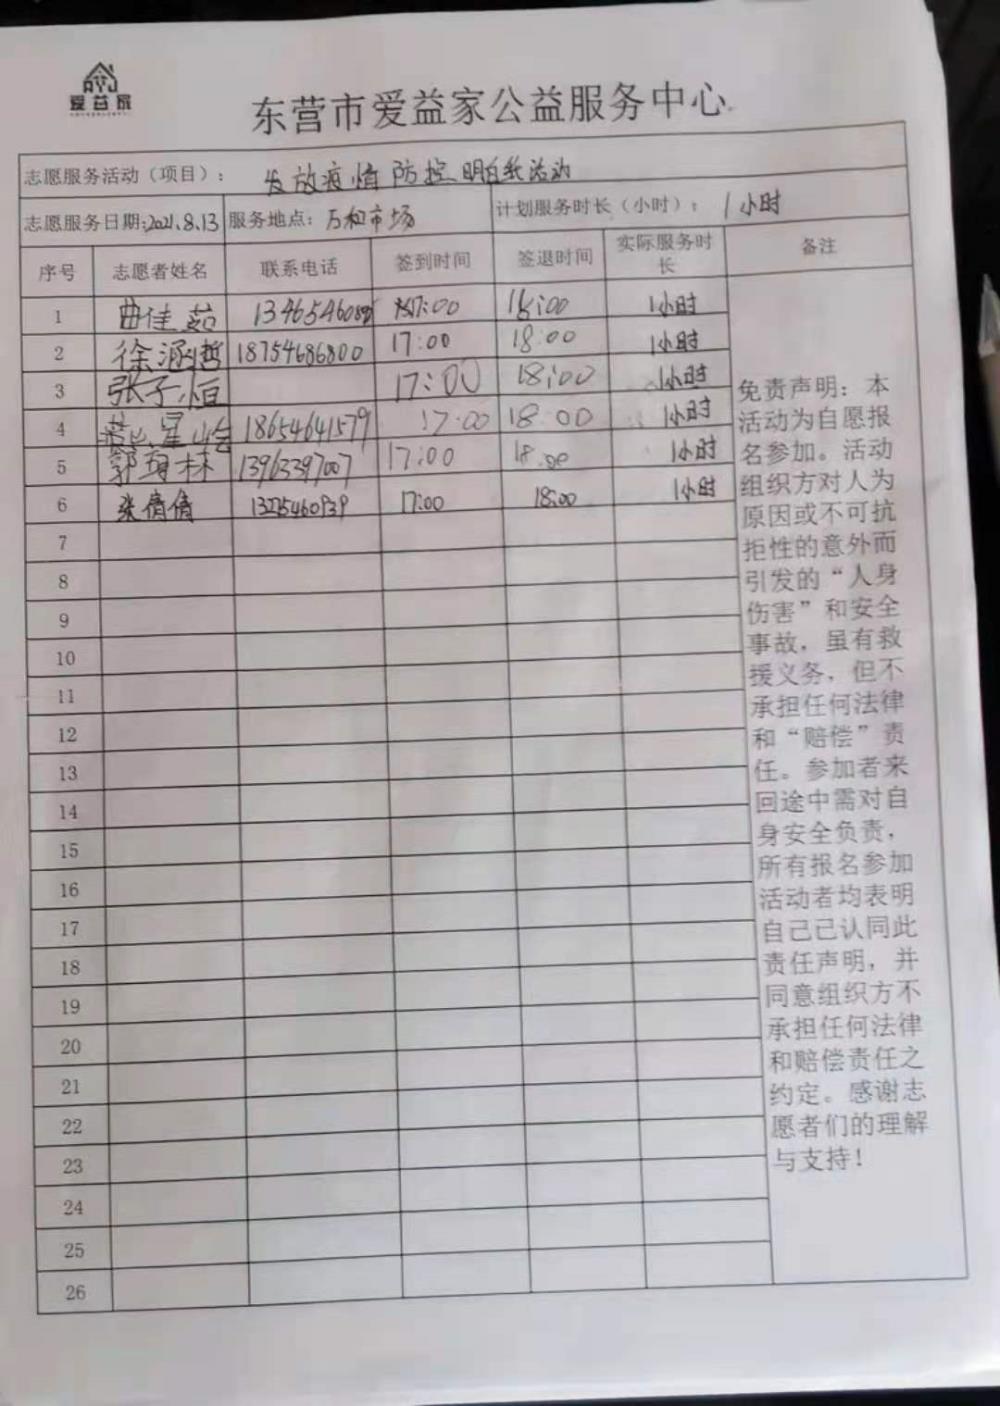 爱益家
东营市爱益家公益服务中心
志愿服务活动（项目）： 发放疫情防控明白纸活动
志愿服务日期:2021.8.13 服务地点：万和市场 计划服务时长（小时）：1小时
序号 志愿者姓名 联系电话 签到时间 签退时间 实际服务时长 备注
1 曲佳茹 17:00 18:00 1小时
2 徐涵哲 18754686800 17:00 18:00 1小时
3 张子恒 17:00 18:00 1小时
4 18654641579 17:00 18:00 1小时
5 郭 林 13963397007 17:00 18:00 1小时
6 张倩倩 17:00 18:00 1小时
7
8
9
10
11
12
13
14
15
16
17
18
19
20
21
22
23
24
25
26
免责声明：本
活动为自愿报
名参加。活动
组织方对人为
原因或不可抗
拒性的意外而
引发的“人身
伤害”和安全
事故，虽有救
援义务，但不
承担任何法律
和“赔偿”责
任。参加者来
回途中需对自
身安全负责，
所有报名参加
活动者均表明
自己己认同此
责任声明，并
同意组织方不
承担任何法律
和赔偿责任之
约定。感谢志
愿者们的理解
与支持！